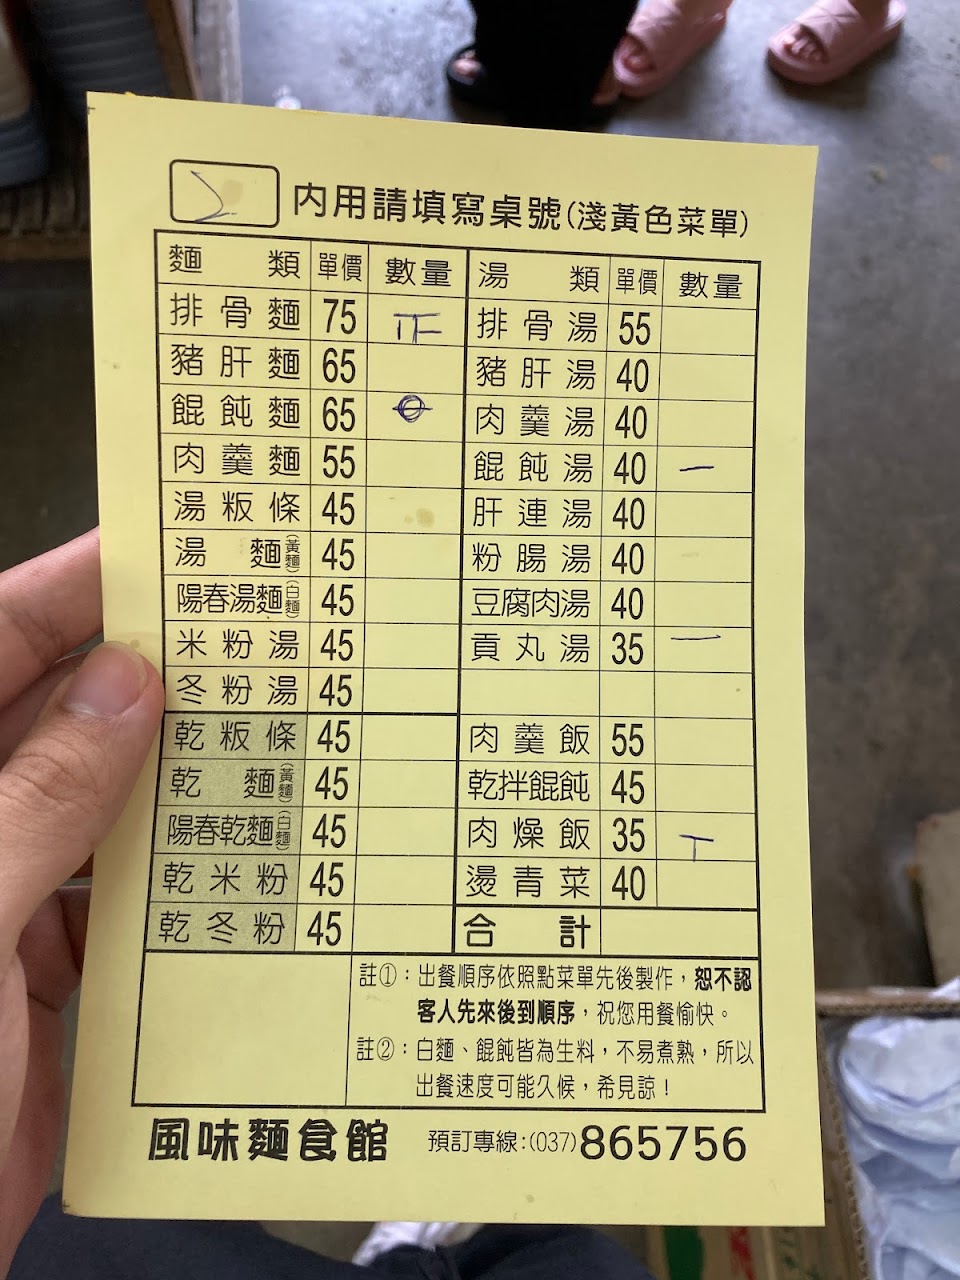 2 內用請填寫桌號(淺黃色菜單)
麵類 單價 數量 湯類 單價 數量
排骨麵 75 正 排骨湯 55
豬肝麵 65 豬肝湯 40
餛飩麵 65 肉羹湯 40
肉羹麵 55 餛飩湯 40 一
湯粄條 45 肝連湯 40
湯麵(黃麵) 45 粉腸湯 40
陽春湯麵(白麵) 45 豆腐肉湯 40
米粉湯 45 貢丸湯 35 一
冬粉湯 45
乾粄條 45 肉羹飯 55
乾麵(黃麵) 45 乾拌餛飩 45
陽春乾麵(白麵) 45 肉燥飯 35 T
乾米粉 45 燙青菜 40
乾冬粉 45 合計
註①：出餐順序依照點菜單先後製作，恕不認
客人先來後到順序，祝您用餐愉快。
註②：白麵、餛飩皆為生料，不易煮熟，所以
出餐速度可能久候，希見諒！
風味麵食館 預訂專線:(037)865756